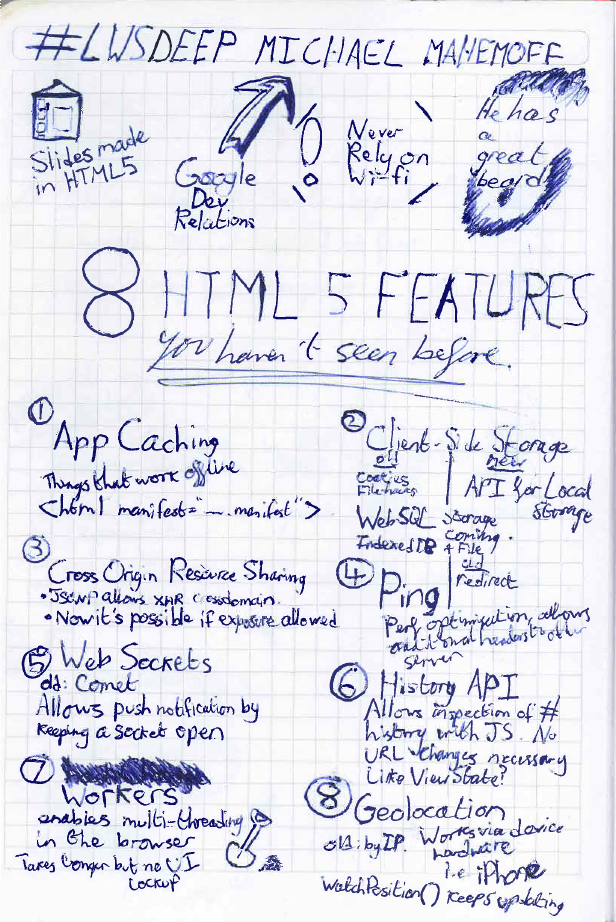 #LWSDEEP MICHAEL MAHEMOFF
Slides made
in HTML5
Google
Dev
Relations
!
Never
Rely on
Wi-fi
He has
a
great
beard
8 HTML 5 FEATURES
you haven't seen before.
1
App Caching
Things that work offline
<html manifest="__.manifest">
2
Client-Side Storage
old
Cookies
new
API for Local
Storage
WebSQL
IndexedDB
Storage
Coming.
+ File
3
Cross Origin Resource Sharing
• JSONP allows XHR crossdomain
• Now it's possible if exposure allowed
4
Ping
old
redirect
Perf optimization, allows
additional headers to other
server
5 Web Sockets
old: Comet
Allows push notification by
Keeping a socket open
6 History API
Allows inspection of #
history with JS. No
URL changes necessary
Like ViewState?
7
Workers
enables multi-threading
in the browser
Takes longer but no UI
Lockup
8 Geolocation
old: by IP. Works via device
hardware
i.e iPhone
WatchPosition() keeps updating